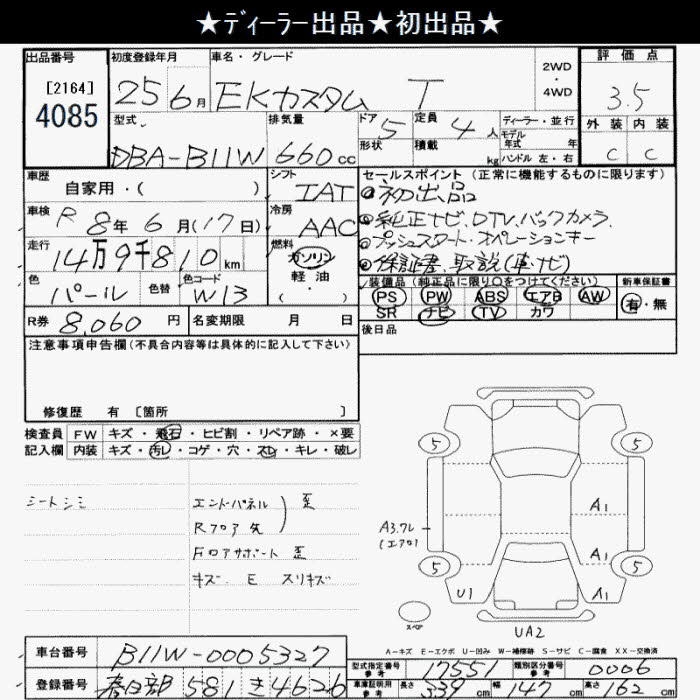 ★ディーラー出品★初出品★
出品番号
[2164]
4085
初度登録年月
25 6月
車名・グレード
EKカスタム T
2WD
・
4WD
評価点
3.5
外装 内装
C C
型式
DBA-B11W
排気量
660cc
ドア 5
形状
定員 4人
積載 kg
ディーラー・並行
モデル年式 年
ハンドル 左・右
車歴
自家用・( )
シフト
IAT
車検
R 8年 6月(17日)
冷房
AAC
走行
14万9千810km
燃料
ガソリン
軽油
・
( )
色
パール
色替
色コード
W13
R券 8,060円
名変期限 月 日
セールスポイント(正常に機能するものに限ります)
●初出品
●純正ナビ、DTV、バックカメラ
●プッシュスタート・オペレーションキー
●保証書、取説(車・ナビ)
装備品(純正品に限り○をつけてください)
PS PW ABS エアB AW
SR ナビ TV カワ
新車保証書
有・無
後日品
注意事項申告欄(不具合内容等は具体的に記入して下さい)
修復歴 有 [箇所 ]
検査員 FW キズ・飛石・ヒビ割・リペア跡・×要
記入欄 内装 キズ・汚レ・コゲ・穴・スレ・キレ・破レ
シートシミ
エンドパネル
Rフロア先 歪
Fロアサポート 歪
キズ E スリキズ
5 5
A3.ワレ
(エアロ)
A1
A1
5 5
U1 A1
スペア
UA2
A-キズ E-エクボ U-凹み W-補修跡 S-サビ C-腐食 XX-交換済
車台番号 B11W-0005327
登録番号 春日部 581 き 4626
型式指定番号 参考 17551
類別区分番号 参考 0006
車庫証明用 参考 長さ 339cm 幅 147cm 高さ 162cm